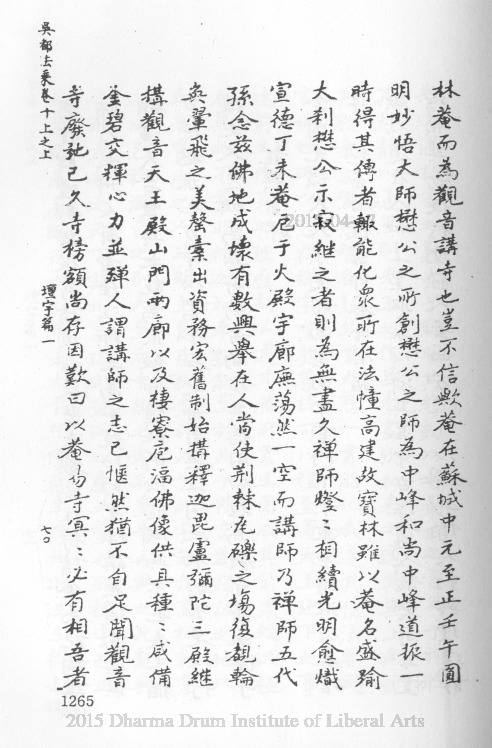 林菴而為觀音講寺也豈不信歟菴在蘇城中元至正壬午圓
明妙悟大師懋公之所創懋公之師為中峰和尚中峰道振一
時得其傳者輙能化眾所在法幢高建故寶林雖以菴名盛踰
大刹懋公示寂繼之者則為無盡久禪師燈〻相續光明愈熾
宣德丁未菴厄于火殿宇廊廡蕩然一空而講師乃禪師五代
孫念兹佛地成壞有數興舉在人嘗使荆棘瓦礫之場復覩輪
奐翬飛之美罄橐出資務宏舊制始搆釋迦毘盧彌陀三殿繼
搆觀音天王殿山門兩廊以及棲寮庖湢佛像供具種〻咸備
金碧交輝心力並殫人謂講師之志已愜然猶不自足聞觀音
寺廢弛已久寺榜額尚存因歎曰以菴易寺冥〻必有相吾者
吳都法乘卷十上之上
壇宇篇一
七〇
1265
2015 Dharma Drum Institute of Liberal Arts